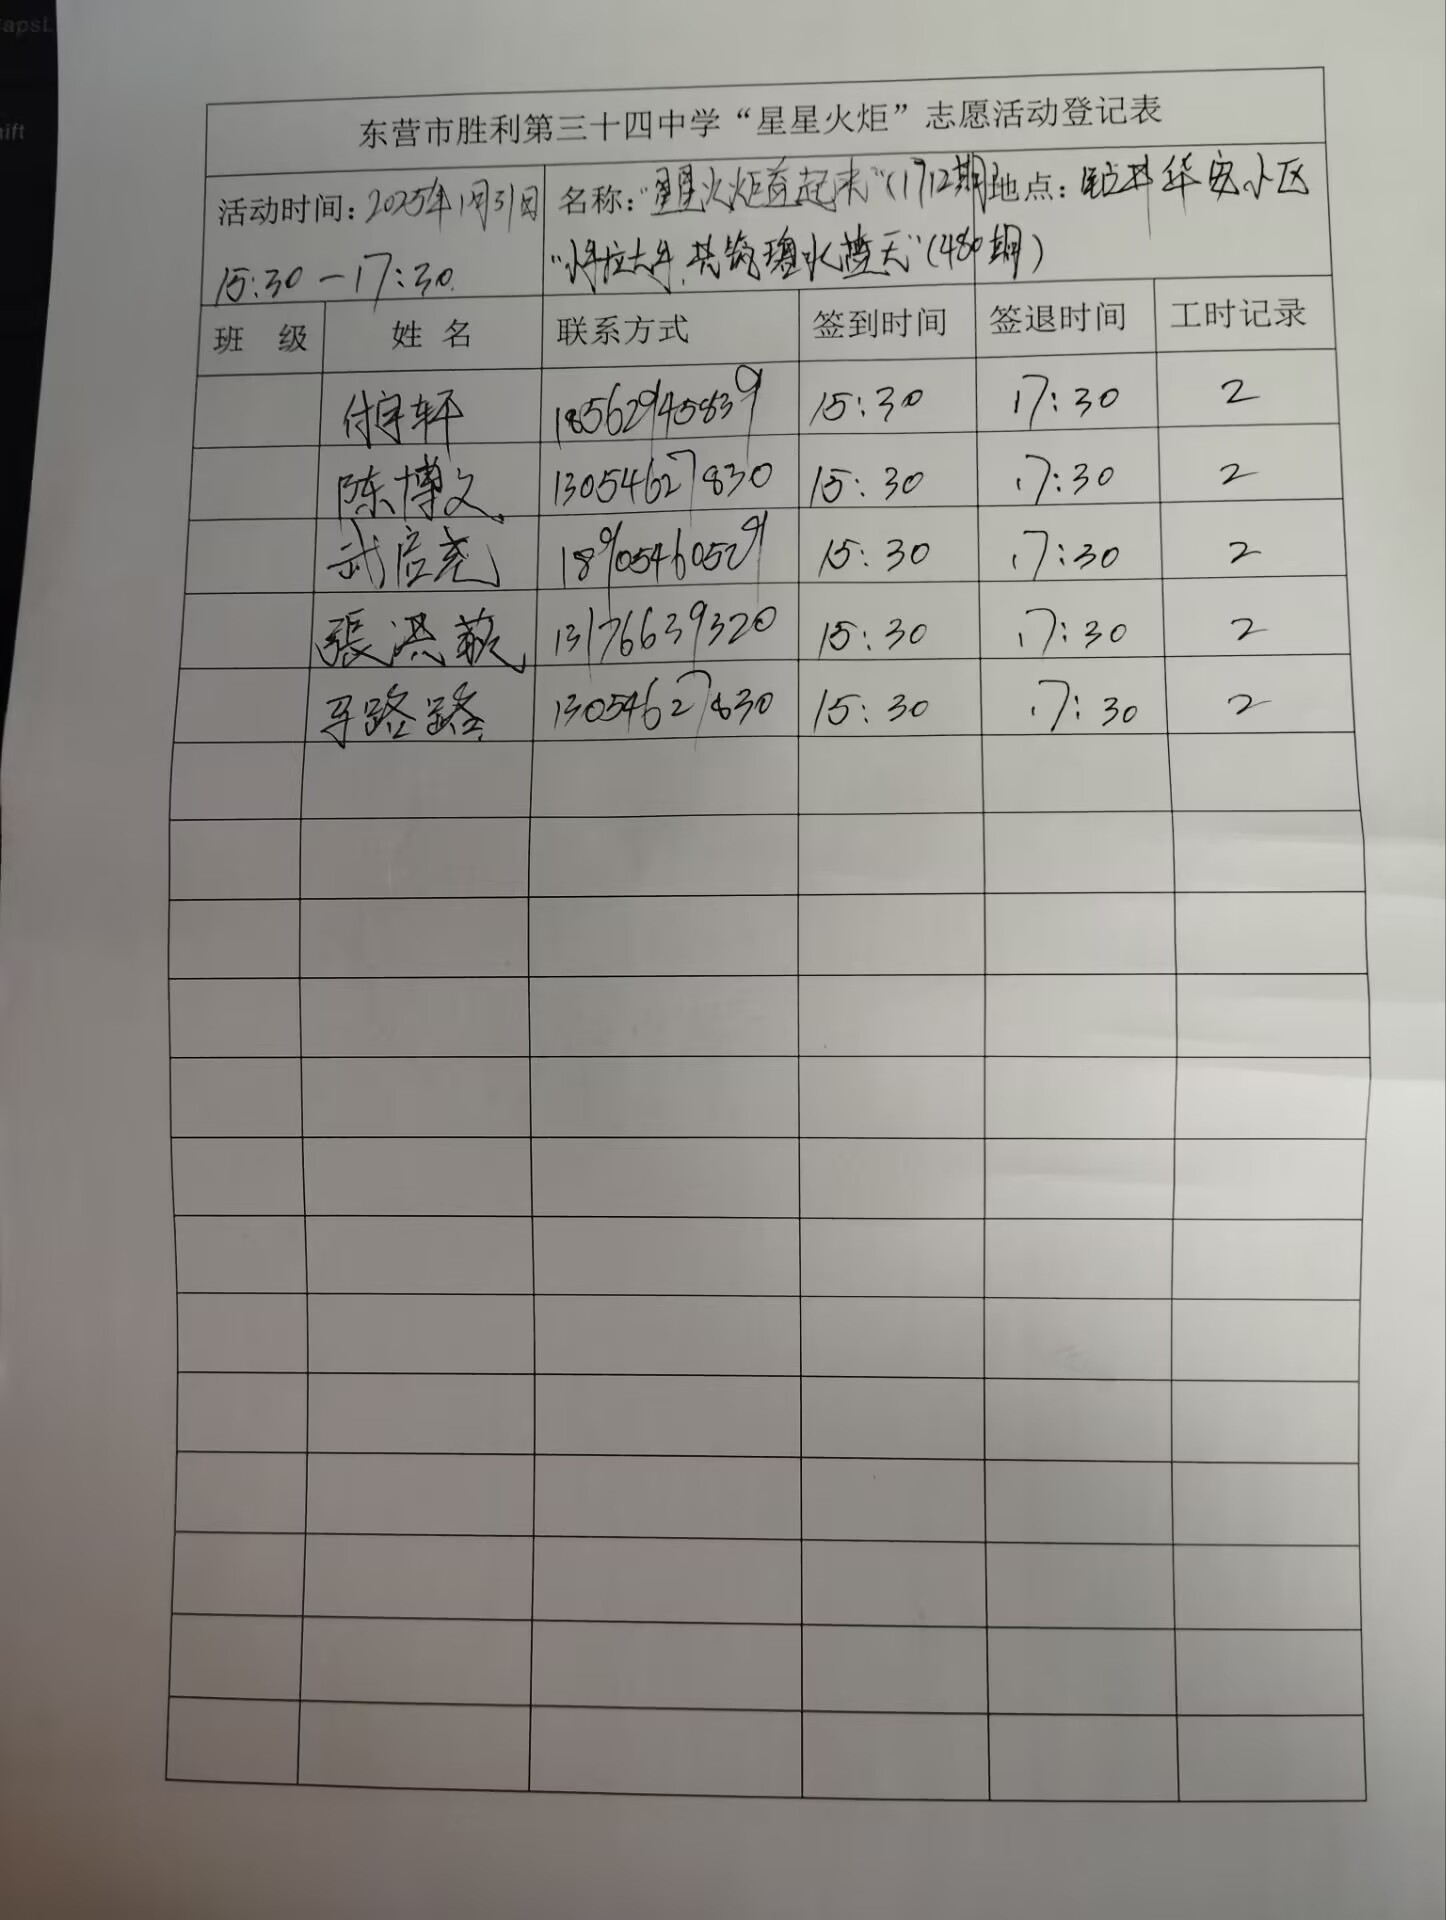 apsL
hift
东营市胜利第三十四中学“星星火炬”志愿活动登记表
活动时间：2025年1月31日 名称：“星星火炬 起来”（1712期 地点： 华安小区
15:30－17:30 “小手拉大手，共筑碧水蓝天”（480期）
班 级 姓 名 联系方式 签到时间 签退时间 工时记录
付宇轩 18562945839 15:30 17:30 2
陈博文 13054627830 15:30 17:30 2
武启尧 18905460529 15:30 17:30 2
張洪 13176639320 15:30 17:30 2
马路路 13054627830 15:30 17:30 2